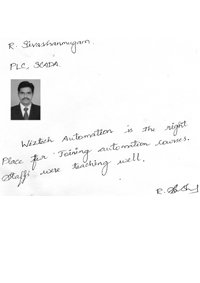 R. Sivashanmugam.
PLC, SCADA.
Wiztech Automation is the right
Place for Joining automation courses.
Staffs were teaching well.
R.